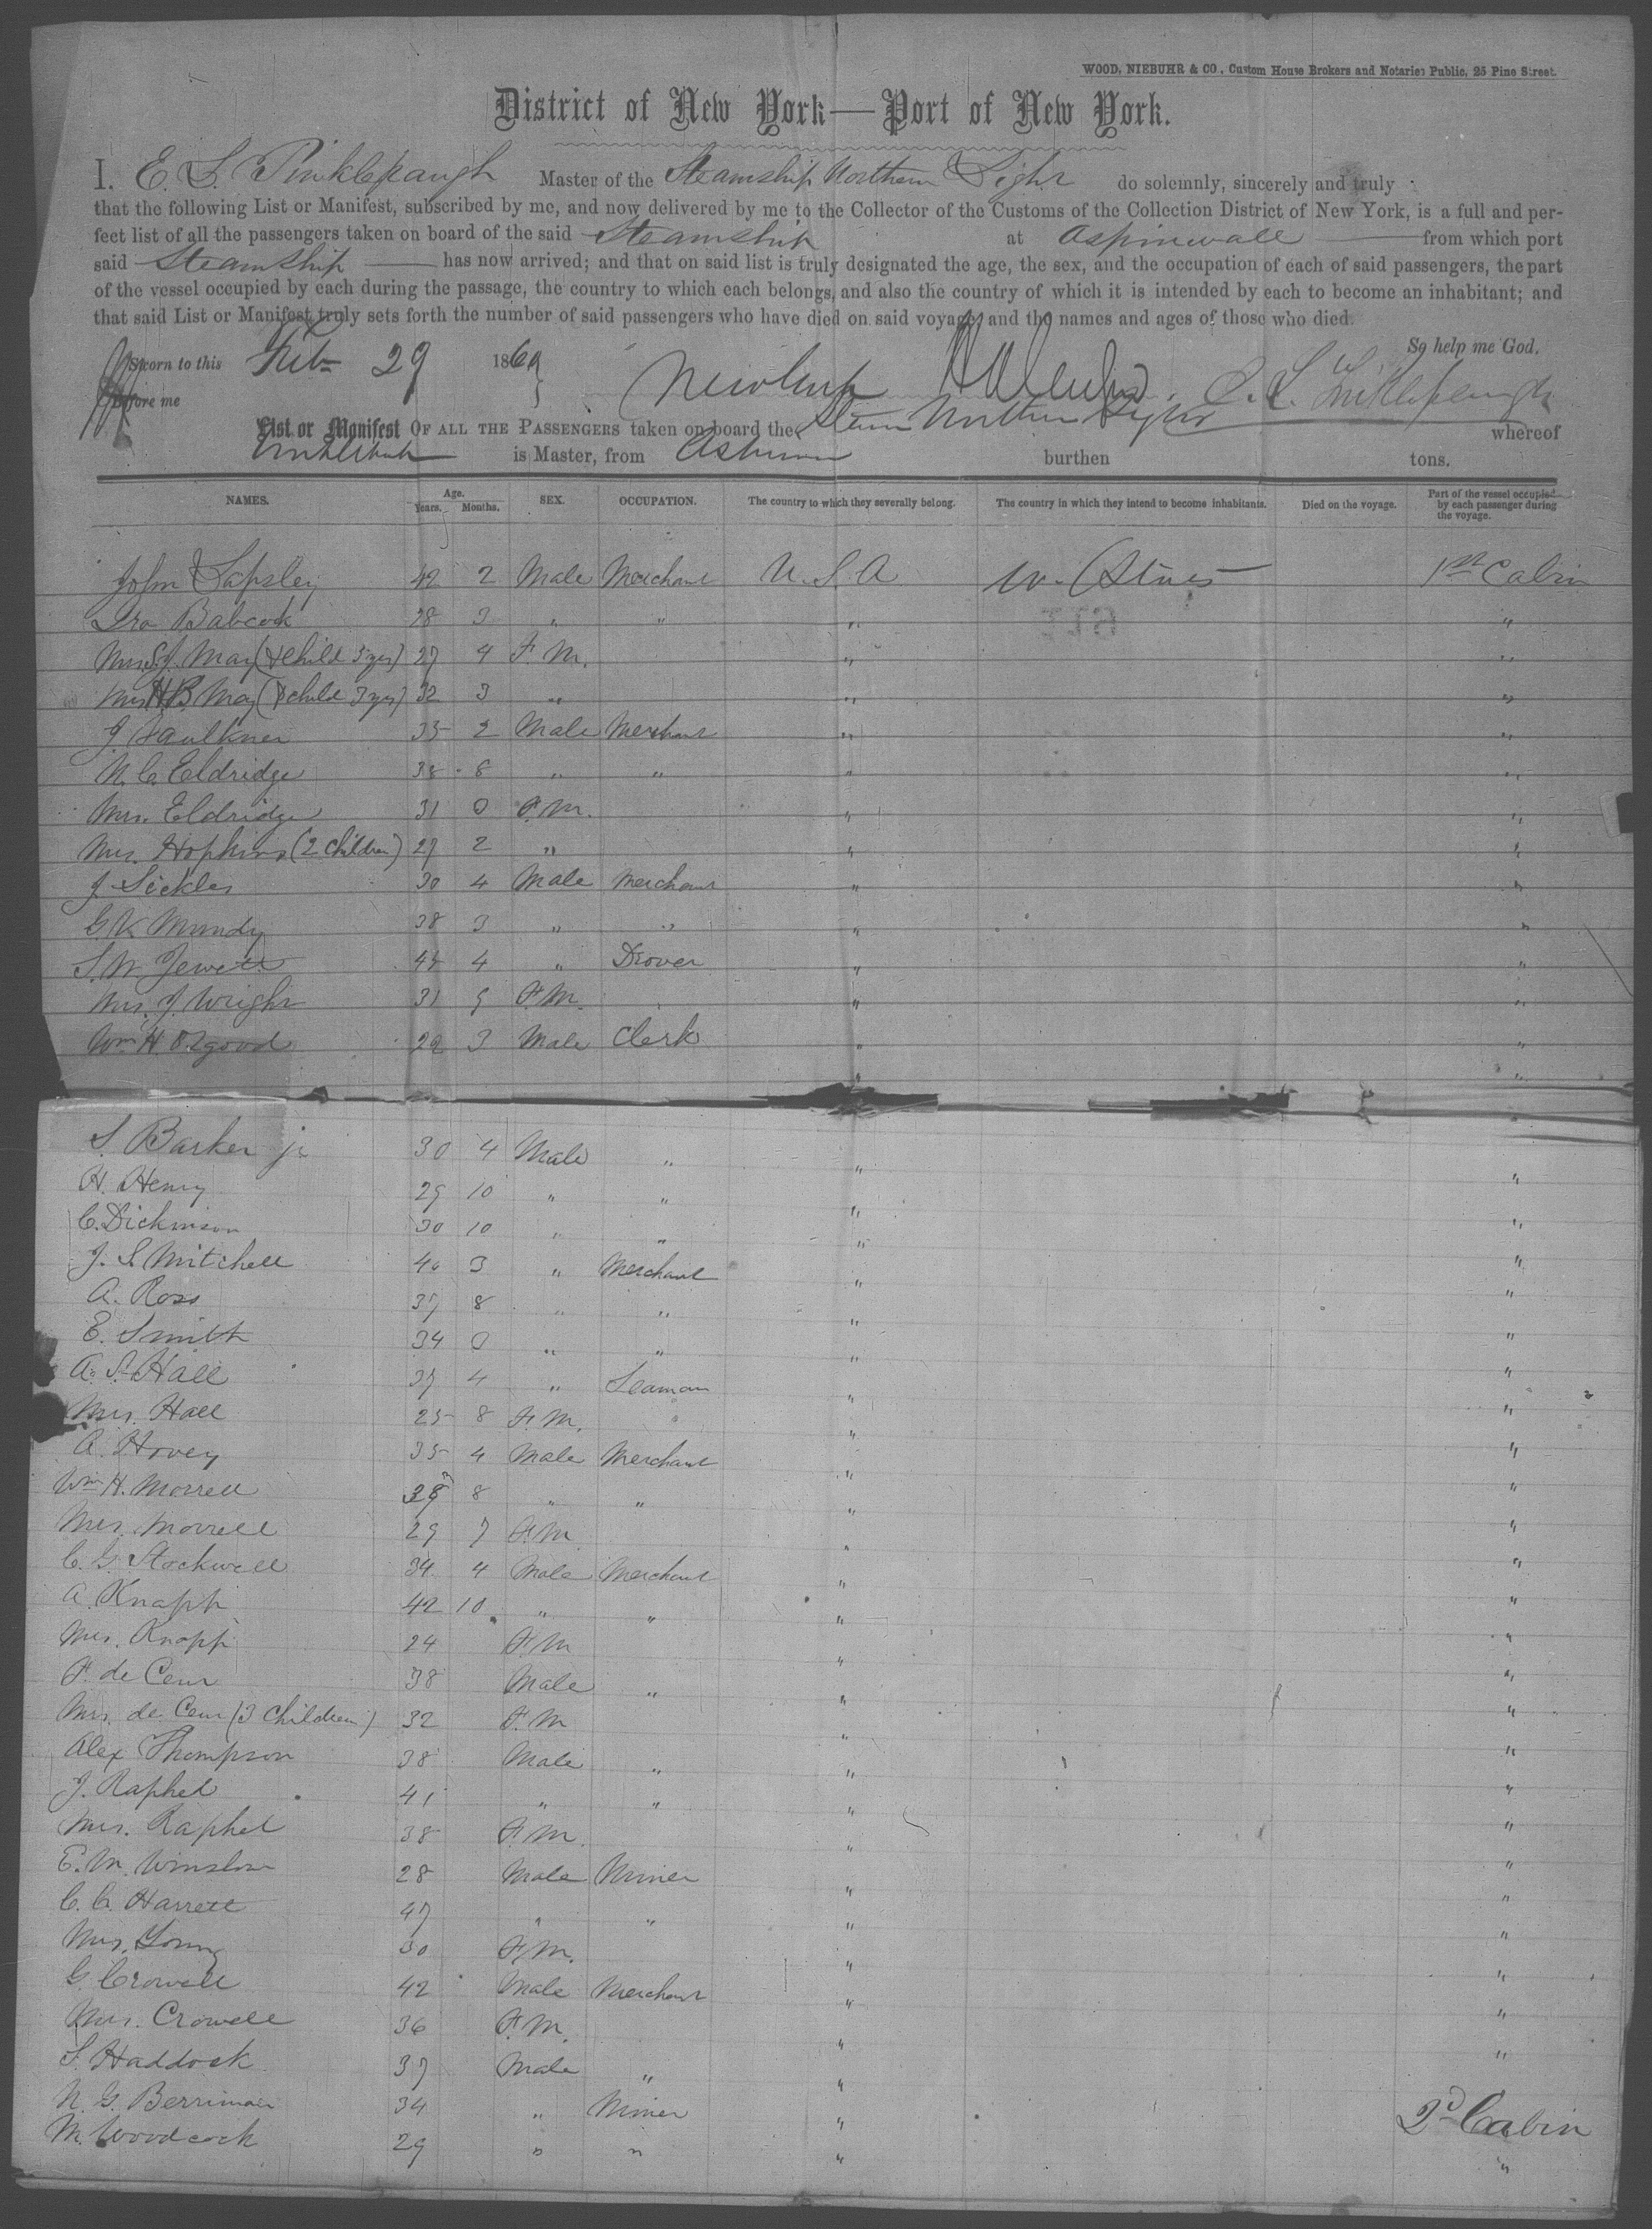 WOOD, NIEBUHR & CO., Custom House Brokers and Notaries Public, 25 Pine Street.
District of New York—Port of New York.
I, E. L. Tinklepaugh Master of the Steamship Northern Light do solemnly, sincerely and truly
that the following List or Manifest, subscribed by me, and now delivered by me to the Collector of the Customs of the Collection District of New York, is a full and per-
fect list of all the passengers taken on board of the said Steamship at Aspinwall from which port
said Steamship has now arrived; and that on said list is truly designated the age, the sex, and the occupation of each of said passengers, the part
of the vessel occupied by each during the passage, the country to which each belongs, and also the country of which it is intended by each to become an inhabitant; and
that said List or Manifest truly sets forth the number of said passengers who have died on said voyage, and the names and ages of those who died.
So help me God.
Sworn to this Feb 29 186
Before me
List or Manifest OF ALL THE PASSENGERS taken on board the Northern Light whereof
Tinklepaugh is Master, from burthen tons.
NAMES. Age. Years. Months. SEX. OCCUPATION. The country to which they severally belong. The country in which they intend to become inhabitants. Died on the voyage. Part of the vessel occupied by each passenger during the voyage.
John Lapsley 42 2 Male Merchant U.S.A 1st Cabin
Ira Babcock 28 3 " " " "
Mrs S.J. May (& child 3 yrs) 27 4 F.M. " "
Mrs H.B. May (& child 3 yrs) 32 3 " " "
J. Faulkner 35 2 Male Merchant " "
N. C. Eldridge 38 8 " " " "
Mrs. Eldridge 31 0 F.M. " "
Mrs. Hopkins (2 Children) 29 2 " " "
J Sickles 30 4 Male Merchant " "
G K Mundy 38 3 " " " "
S. W. Jewett 4 " Drover " "
Mrs. J. Wright 31 9 F.M. " "
Wm H. Osgood 3 Male Clerk " "
S. Barker jr 30 4 Male " " "
H. Henry 29 10 " " " "
C. Dickinson 30 10 " " " "
J. S. Mitchell 40 3 " Merchant " "
A. Ross 37 8 " " " "
E. Smith 34 0 " " " "
A. S. Hall 37 4 " Seaman " "
Mrs. Hall 25 8 F.M. " "
A. Hovey 35 4 Male Merchant " "
Wm H. Morrell 8 " " " "
Mrs. Morrell 29 7 F.M " "
C. G. Stockwell 34 4 Male Merchant " "
A. Knapp 42 10 " " " "
Mrs. Knapp 24 F.M " "
F. de Ceur 38 Male " " "
Mrs. de Ceur (3 Children) 32 F.M " "
Alex Thompson 38 Male " " "
J. Raphel 41 " " " "
Mrs. Raphel 38 F.M. " "
E. M. Winslow 28 Male Miner " "
C. C. Harrett 47 " " " "
Mrs. Young 30 F.M. " "
G. Crowell 42 Male Merchant " "
Mrs. Crowell 36 F.M. " "
S. Haddock 37 Male " " "
N. G. Berriman 34 " Miner " 2d Cabin
M. Woodcock 29 " " " "